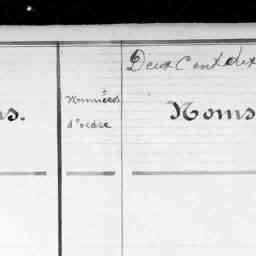 Deux Cent dix
Numéros
d'ordre
Noms
s.